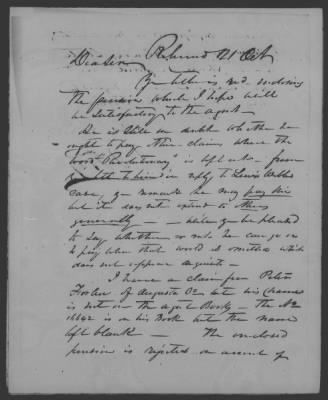 Richmond 21 Oct
Dear Sir
Your letter is recd. enclosing
the pension which I hope will
be satisfactory to the agent
He is still in doubt whether he
ought to pay those claims where the
word "Revolutionary" is left out - from
letter to him in reply to Lewis Webbs
case, you remark he may pay this
but it does not extend to others
generally — will you be pleased
to say whether or not he can go on
to pay when that word is omitted which
does not appear requisite -
I have a claim from Peter
Foster of Augusta Co but his name
is not on the agent Books - The No
16642 is on his Book but the name
left blank — The enclosed
pension is rejected on account of